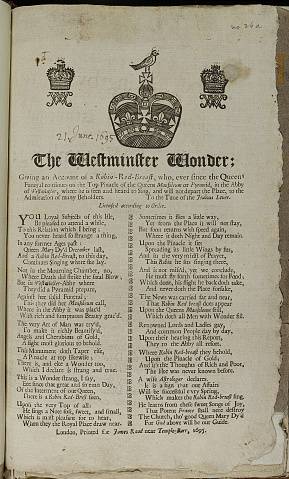 no 26a
21 June. 1695
The Westminster Wonder;
Giving an Account of a Robin-Red-Breast, who, ever since the Queens
Funeral continues on the Top Pinacle of the Queens Mausoleum or Pyramid, in the Abby
of Westminster, where he is seen and heard to sing, and will not depart the Place, to the
Admiration of many Beholders. To the Tune of the Jealous Lover.
Licensed according to Order.
YOU Loyal Subjects of this Isle,
Be pleased to attend a while,
To this Relation which I bring;
You never heard so strange a thing,
In any former Ages past:
Queen Mary Dy'd December last,
And a Robin Red-breast, to this day,
Continues Singing where she lay.
Not in the Mourning Chamber, no,
Where Death did strike the fatal Blow,
But in Westminster-Abby where
They did a Pyramid prepare,
Against her solid Funeral;
This they did her Mausoleum call,
Where in the Abby it was plac'd
With rich and sumptuous Beauty grac'd.
The very Art of Man was try'd,
To make it richly Beautify'd,
Angels and Cherubims of Gold,
A sight most glorious to behold.
This Monument doth Taper rise,
A Pinacle at top likewise;
Here is, and eke a Wonder too,
Which I declare is strang and true.
This is a Wonder strang, I say,
For since that great and solemn Day,
Of the Interment of our Queen,
There is a Robin Red-Brest seen,
Upon the very Top of all:
He sings a Note soft, sweet, and small,
Which is most pleasant for to hear,
When they the Royal Place draw near.
Sometimes it flies a little way,
Yet from the Place it will not stay,
But soon returns with speed again,
Where it doth Night and Day remain.
Upon the Pinacle it sits
Spreading its little Wings by fits,
And in the very midst of Prayer,
This Robin he sits singing there.
And is not miss'd, yet we conclude,
He must fly forth sometimes for Food;
Which done, his flight he back doth take,
And never doth the Place forsake,
The News was carried far and near,
That Robin Red-brest does appear
Upon the Queens Mausoleum still,
Which doth all Men with Wonder fill.
Renowned Lords and Ladies gay,
And common People day by day,
Upon their hearing this Report,
They to the Abby all resort,
Where Robin Red-brest they behold,
Upon the Pinacle of Gold,
And it's the Thoughts of Rich and Poor,
The like was never known before.
A wise Astrologer declares
It is a sign that our Affairs
Will be succesful every Spring,
Which makes the Robin Red-brest sing.
He learns from these sweet Songs of Joy,
That Potent France shall nere destroy
The Church, tho' good Queen Mary Dy'd
For God above will be our Guide.
London, Printed for James Read near Temple-Barr, 1695.